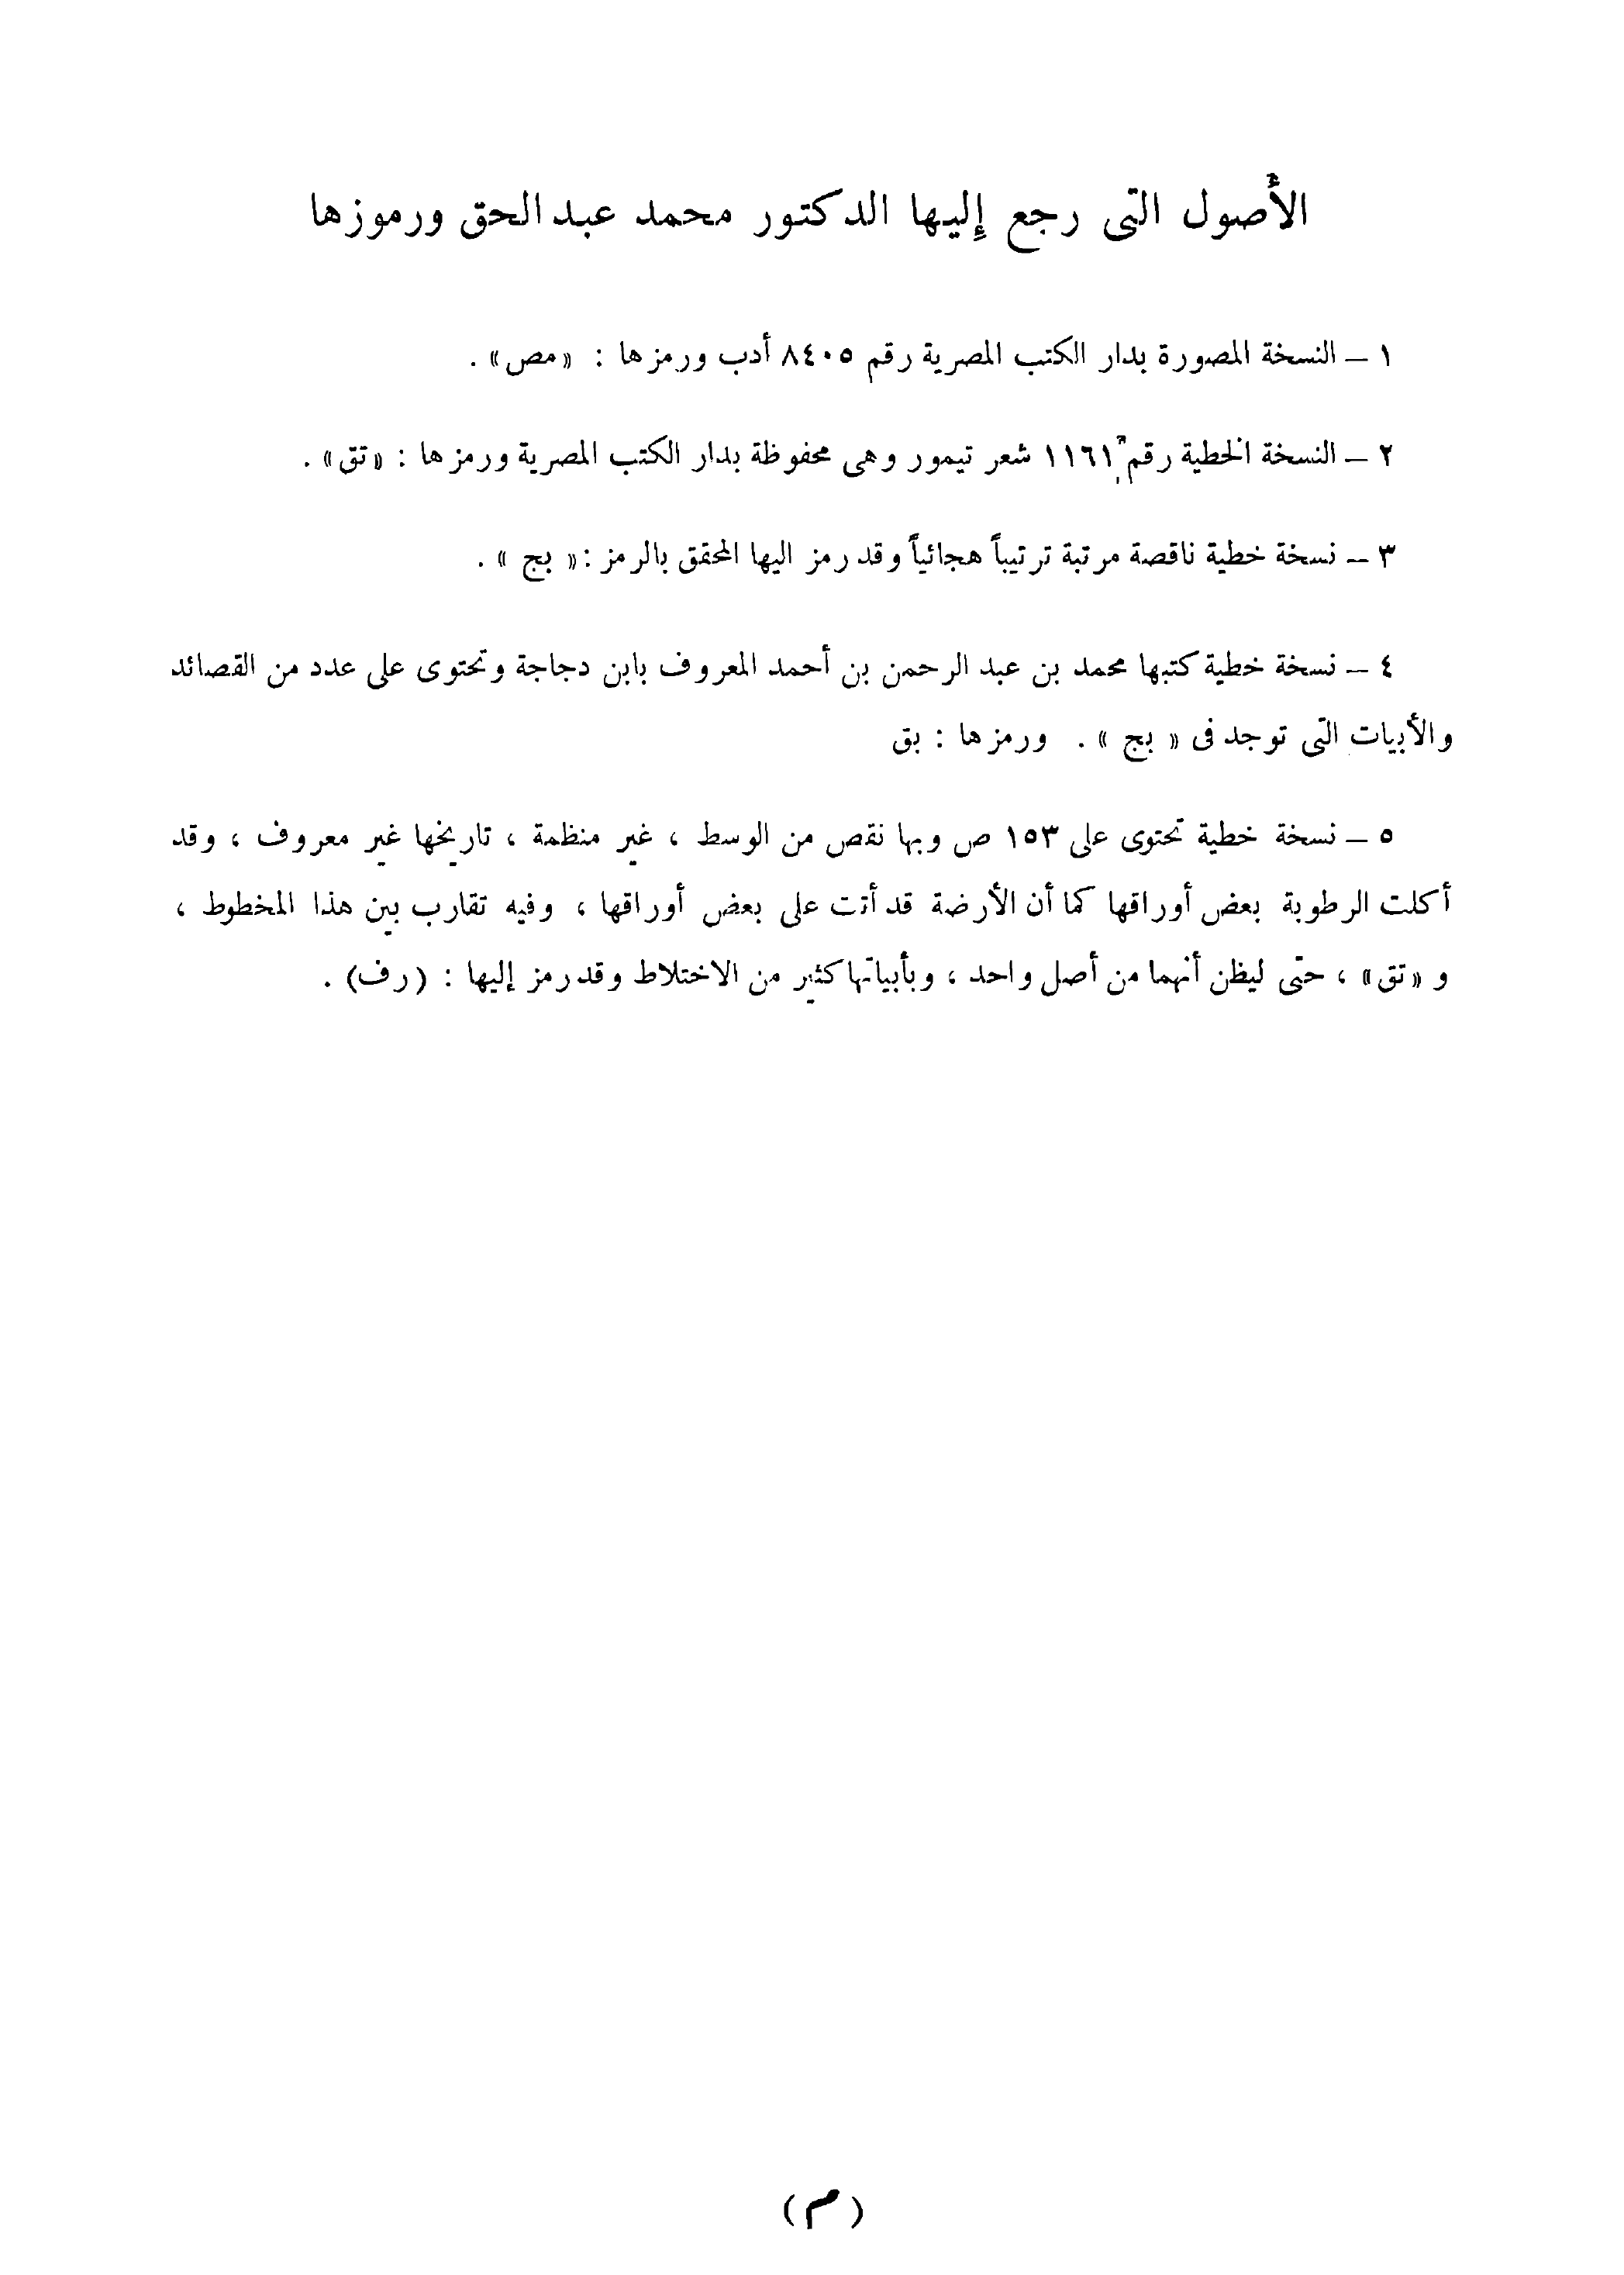 الأصول التى رجع إليها الدكتور محمد عبد الحق ورموزها
١ – النسخة المصورة بدار الكتب المصرية رقم ٨٤٠٥ أدب ورمزها : «مص» .
٢ – النسخة الخطية رقم ١١٦١ شعر تيمور وهى محفوظة بدار الكتب المصرية ورمزها : «تق» .
٣ – نسخة خطية ناقصة مرتبة ترتيباً هجائياً وقد رمز اليها المحقق بالرمز : « بج » .
٤ – نسخة خطية كتبها محمد بن عبد الرحمن بن أحمد المعروف بابن دجاجة وتحتوى على عدد من القصائد
والأبيات التى توجد فى « بج » . ورمزها : بق
٥ – نسخة خطية تحتوى على ١٥٣ ص وبها نقص من الوسط ، غير منظمة ، تاريخها غير معروف ، وقد
أكلت الرطوبة بعض أوراقها كما أن الأرضة قد أتت على بعض أوراقها ، وفيه تقارب بين هذا المخطوط ،
و «تق» ، حتى ليظن أنهما من أصل واحد ، وبأبياتها كثير من الاختلاط وقد رمز إليها : (رف) .
(م)